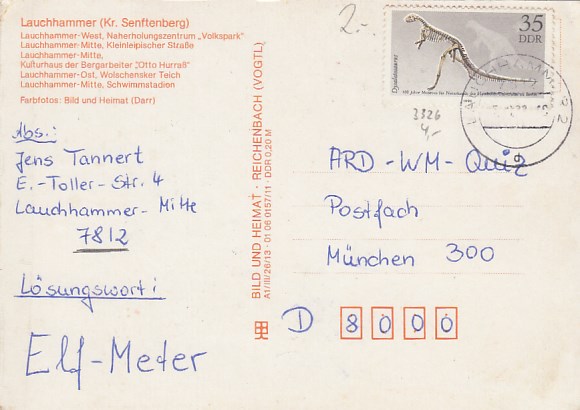 Lauchhammer (Kr. Senftenberg)
Lauchhammer-West, Naherholungszentrum „Volkspark"
Lauchhammer-Mitte, Kleinleipischer Straße
Lauchhammer-Mitte,
Kulturhaus der Bergarbeiter „Otto Hurraß"
Lauchhammer-Ost, Wolschensker Teich
Lauchhammer-Mitte, Schwimmstadion
Farbfotos: Bild und Heimat (Darr)
Abs.:
Jens Tannert
E.-Toller-Str. 4
Lauchhammer-Mitte
7812
Lösungswort:
Elf-Meter
BILD UND HEIMAT · REICHENBACH (VOGTL)
A1/III/26/13 · 01 06 0157/11 · DDR 0,20 M
2.-
35
DDR
Dysalotosaurus
3326
4,-
ARD-WM-Quiz
Postfach
München 300
D 8000